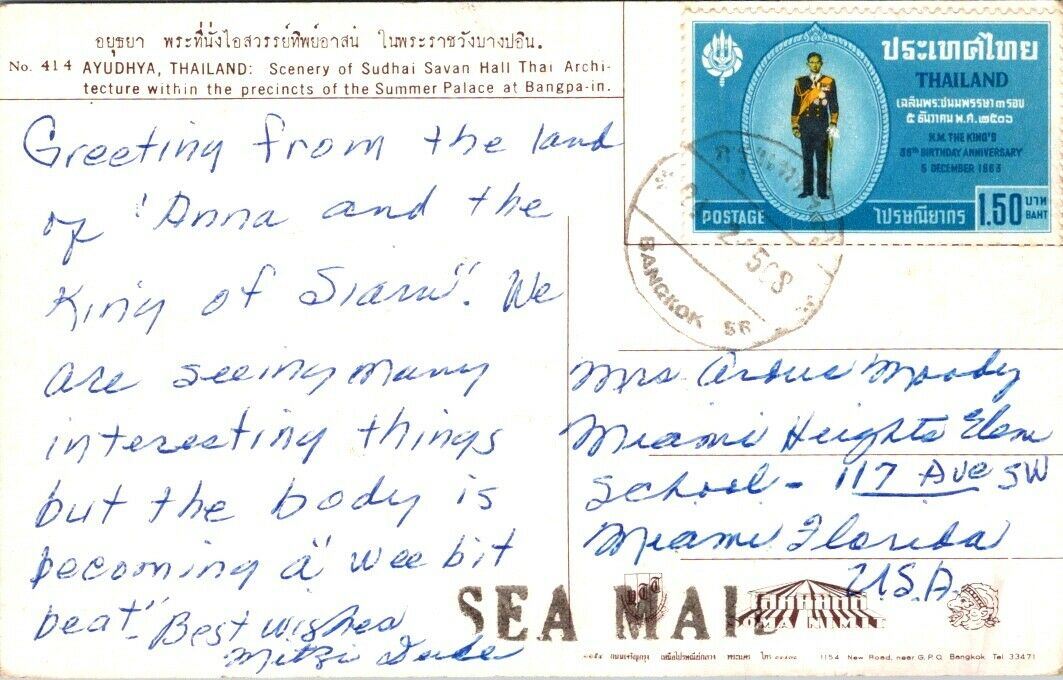 อยุธยา พระที่นั่งไอสวรรย์ทิพย์อาสน์ ในพระราชวังบางปอิน.
No. 414 AYUDHYA, THAILAND: Scenery of Sudhai Savan Hall Thai Archi-
tecture within the precincts of the Summer Palace at Bangpa-in.
Greeting from the land
of "Anna and the
King of Siam". We
are seeing many
interesting things
but the body is
becoming a "wee bit
beat". Best wishes
Mitzi
ประเทศไทย
THAILAND
เฉลิมพระชนมพรรษา ๓ รอบ
๕ ธันวาคม พ.ศ. ๒๕๐๖
H.M. THE KING'S
36th BIRTHDAY ANNIVERSARY
5 DECEMBER 1963
POSTAGE
ไปรษณียากร
1.50 บาท
BAHT
BANGKOK
Mrs Moody
Miami Heights Elem
School - 117 Ave SW
Miami Florida
U.S.A.
SEA MAIL
1154 New Road, near G.P.O. Bangkok Tel 33471